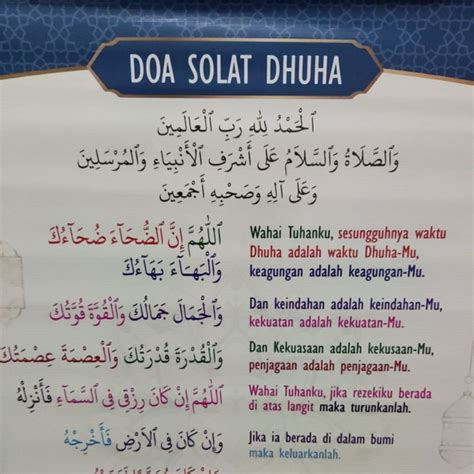 DOA SOLAT DHUHA
الْحَمْدُ لِلّٰهِ رَبِّ الْعَالَمِينَ
وَالصَّلَاةُ وَالسَّلَامُ عَلَى أَشْرَفِ الْأَنْبِيَاءِ وَالْمُرْسَلِينَ
وَعَلَى آلِهِ وَصَحْبِهِ أَجْمَعِينَ
اَللّٰهُمَّ إِنَّ الضُّحَآءَ ضُحَاءُكَ
Wahai Tuhanku, sesungguhnya waktu
Dhuha adalah waktu Dhuha-Mu,
وَالْبَهَاءَ بَهَاءُكَ
keagungan adalah keagungan-Mu.
وَالْجَمَالَ جَمَالُكَ وَالْقُوَّةَ قُوَّتُكَ
Dan keindahan adalah keindahan-Mu,
kekuatan adalah kekuatan-Mu.
وَالْقُدْرَةَ قُدْرَتُكَ وَالْعِصْمَةَ عِصْمَتُكَ
Dan Kekuasaan adalah kekusaan-Mu,
penjagaan adalah penjagaan-Mu.
اَللّٰهُمَّ إِنْ كَانَ رِزْقِى فِى السَّمَآءِ فَأَنْزِلْهُ
Wahai Tuhanku, jika rezekiku berada
di atas langit maka turunkanlah.
وَإِنْ كَانَ فِى الْاَرْضِ فَأَخْرِجْهُ
Jika ia berada di dalam bumi
maka keluarkanlah.